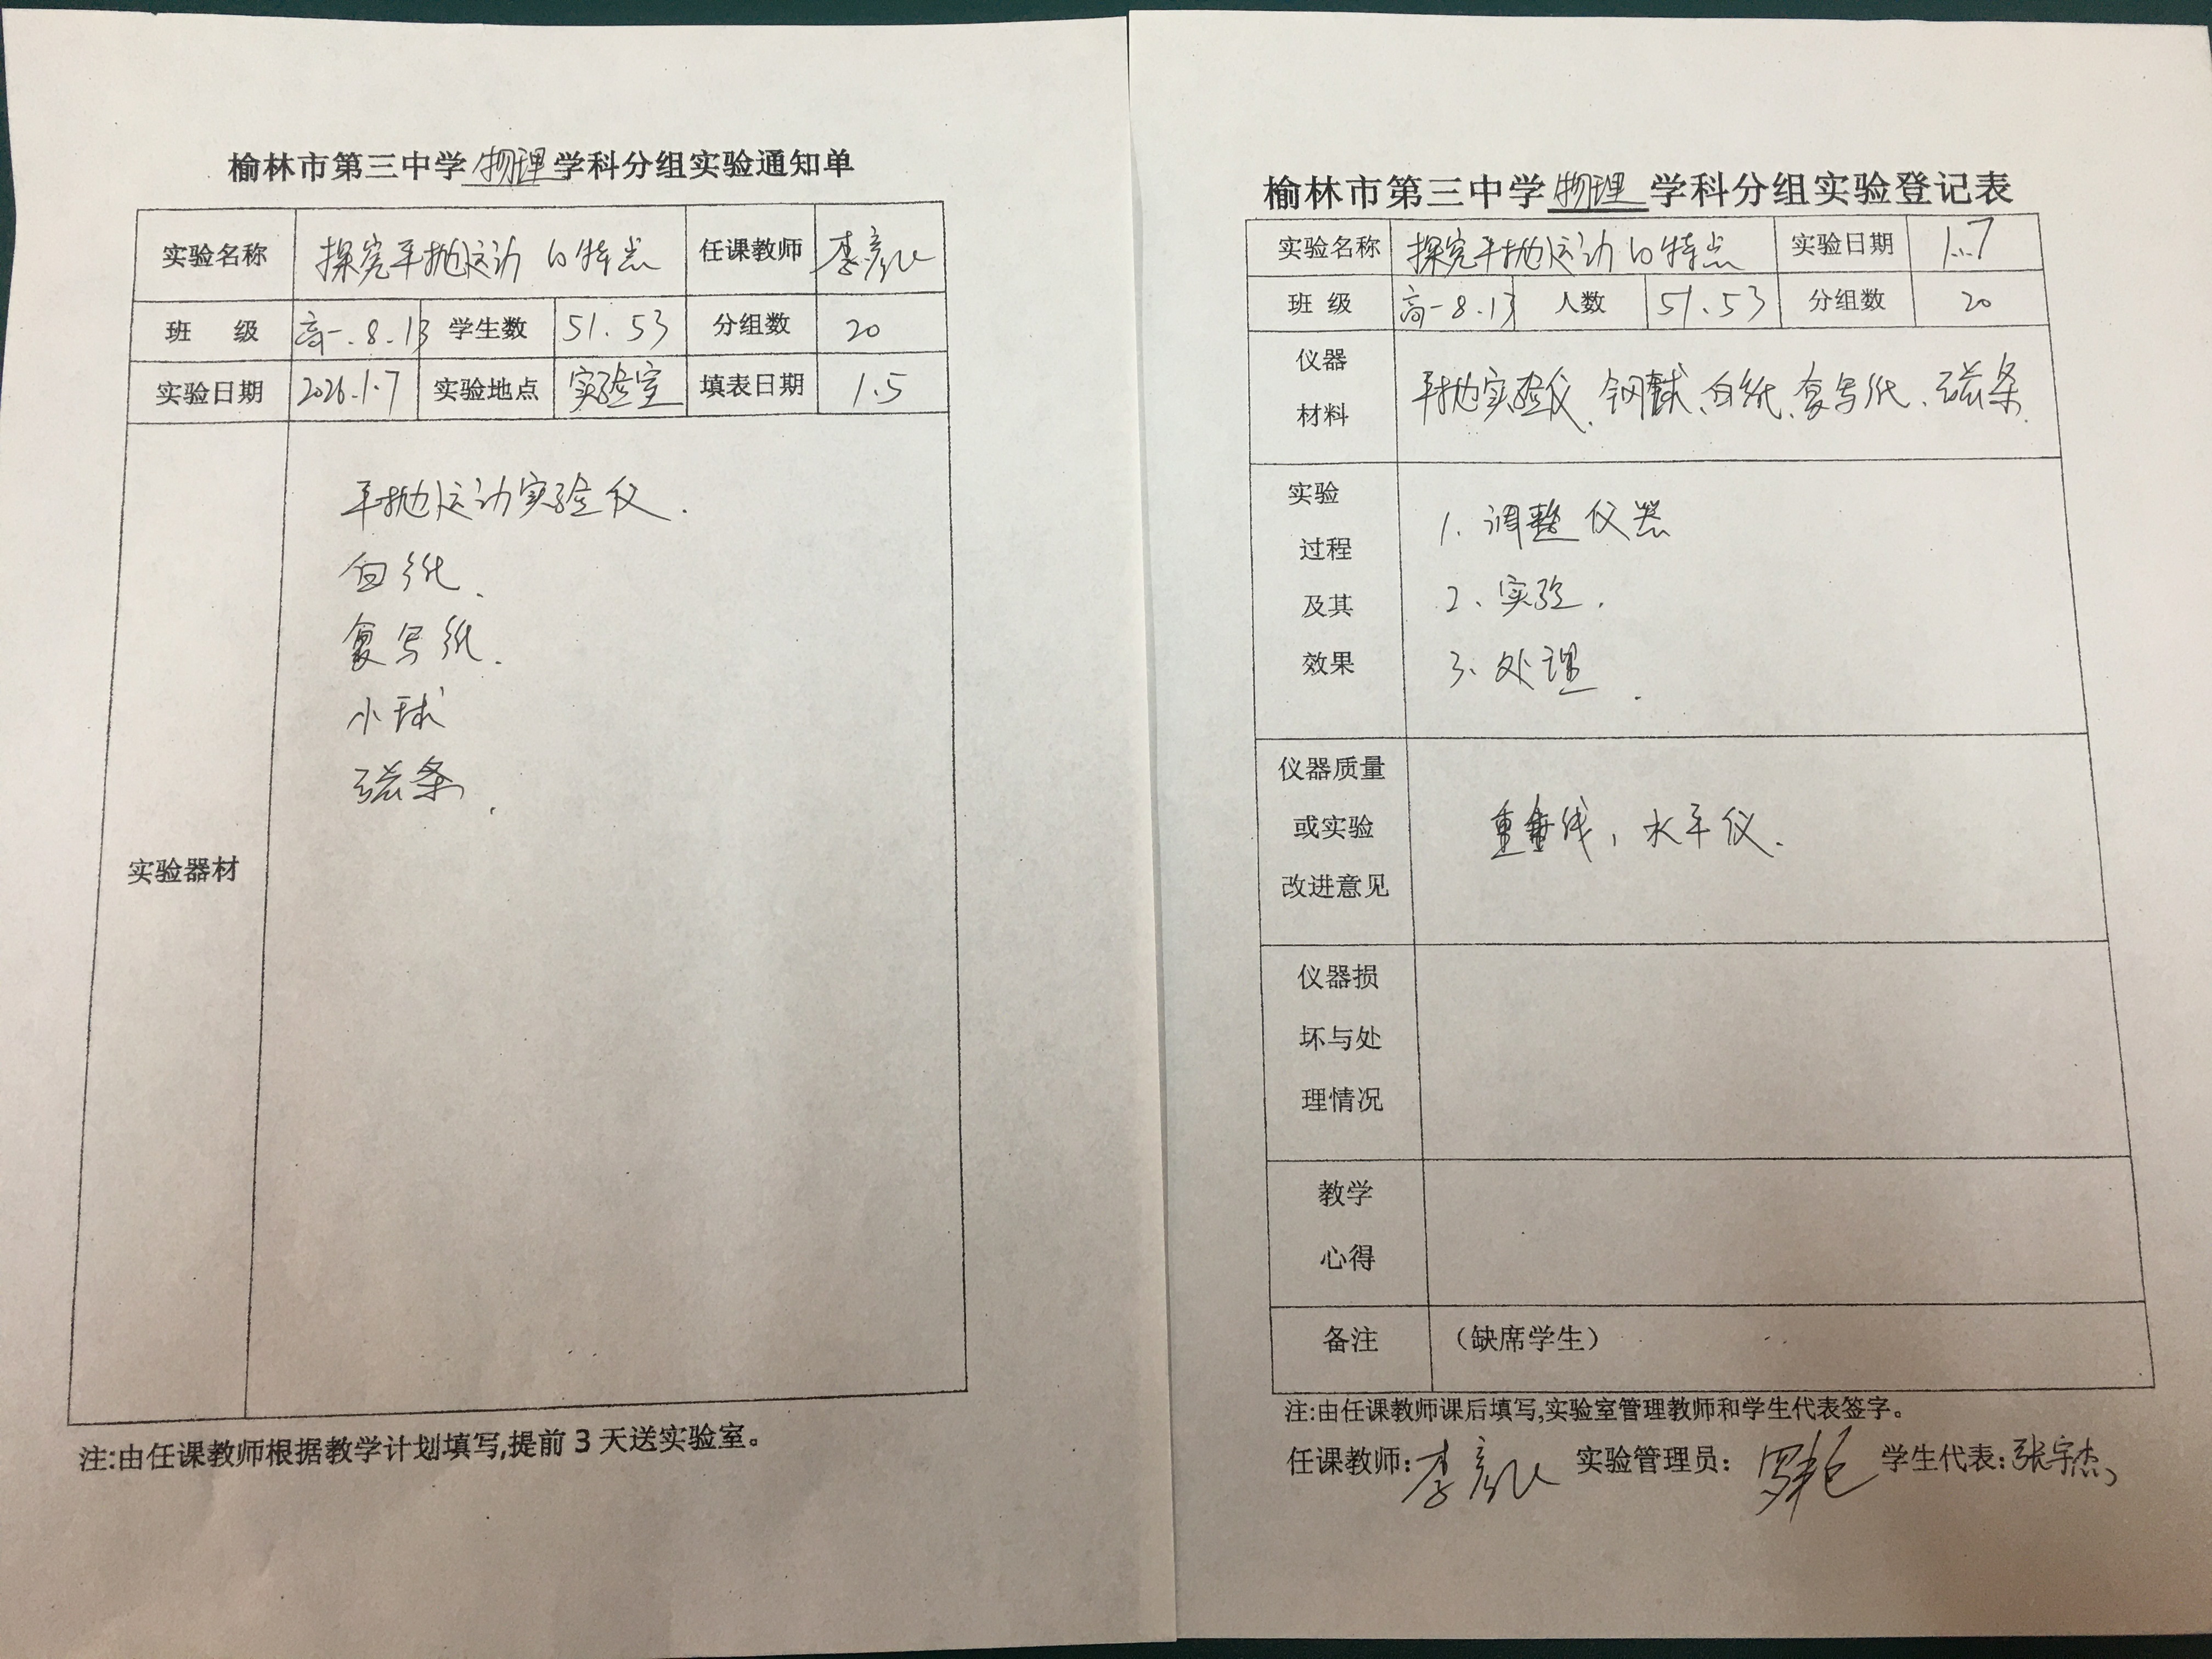 榆林市第三中学物理学科分组实验通知单
实验名称 探究平抛运动的特点 任课教师 李彦
班 级 高一.8.13 学生数 51.53 分组数 20
实验日期 2026.1.7 实验地点 实验室 填表日期 1.5
实验器材
平抛运动实验仪.
白纸.
复写纸.
小球
磁条.
注:由任课教师根据教学计划填写,提前 3 天送实验室。
榆林市第三中学物理学科分组实验登记表
实验名称 探究平抛运动的特点 实验日期 1.7
班 级 高一8.13 人数 51.53 分组数 20
仪器
材料
平抛实验仪、钢球、白纸、复写纸、磁条.
实验
过程
及其
效果
1. 调整仪器
2、实验.
3、处理.
仪器质量
或实验
改进意见
重垂线, 水平仪.
仪器损
坏与处
理情况
教学
心得
备注 （缺席学生）
注:由任课教师课后填写,实验室管理教师和学生代表签字。
任课教师: 李彦 实验管理员: 罗 学生代表: 张宇杰